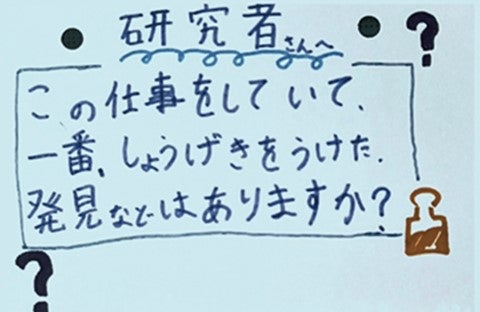 研究者さんへ
この仕事をしていて、
一番、しょうげきをうけた、
発見などはありますか?
?
?